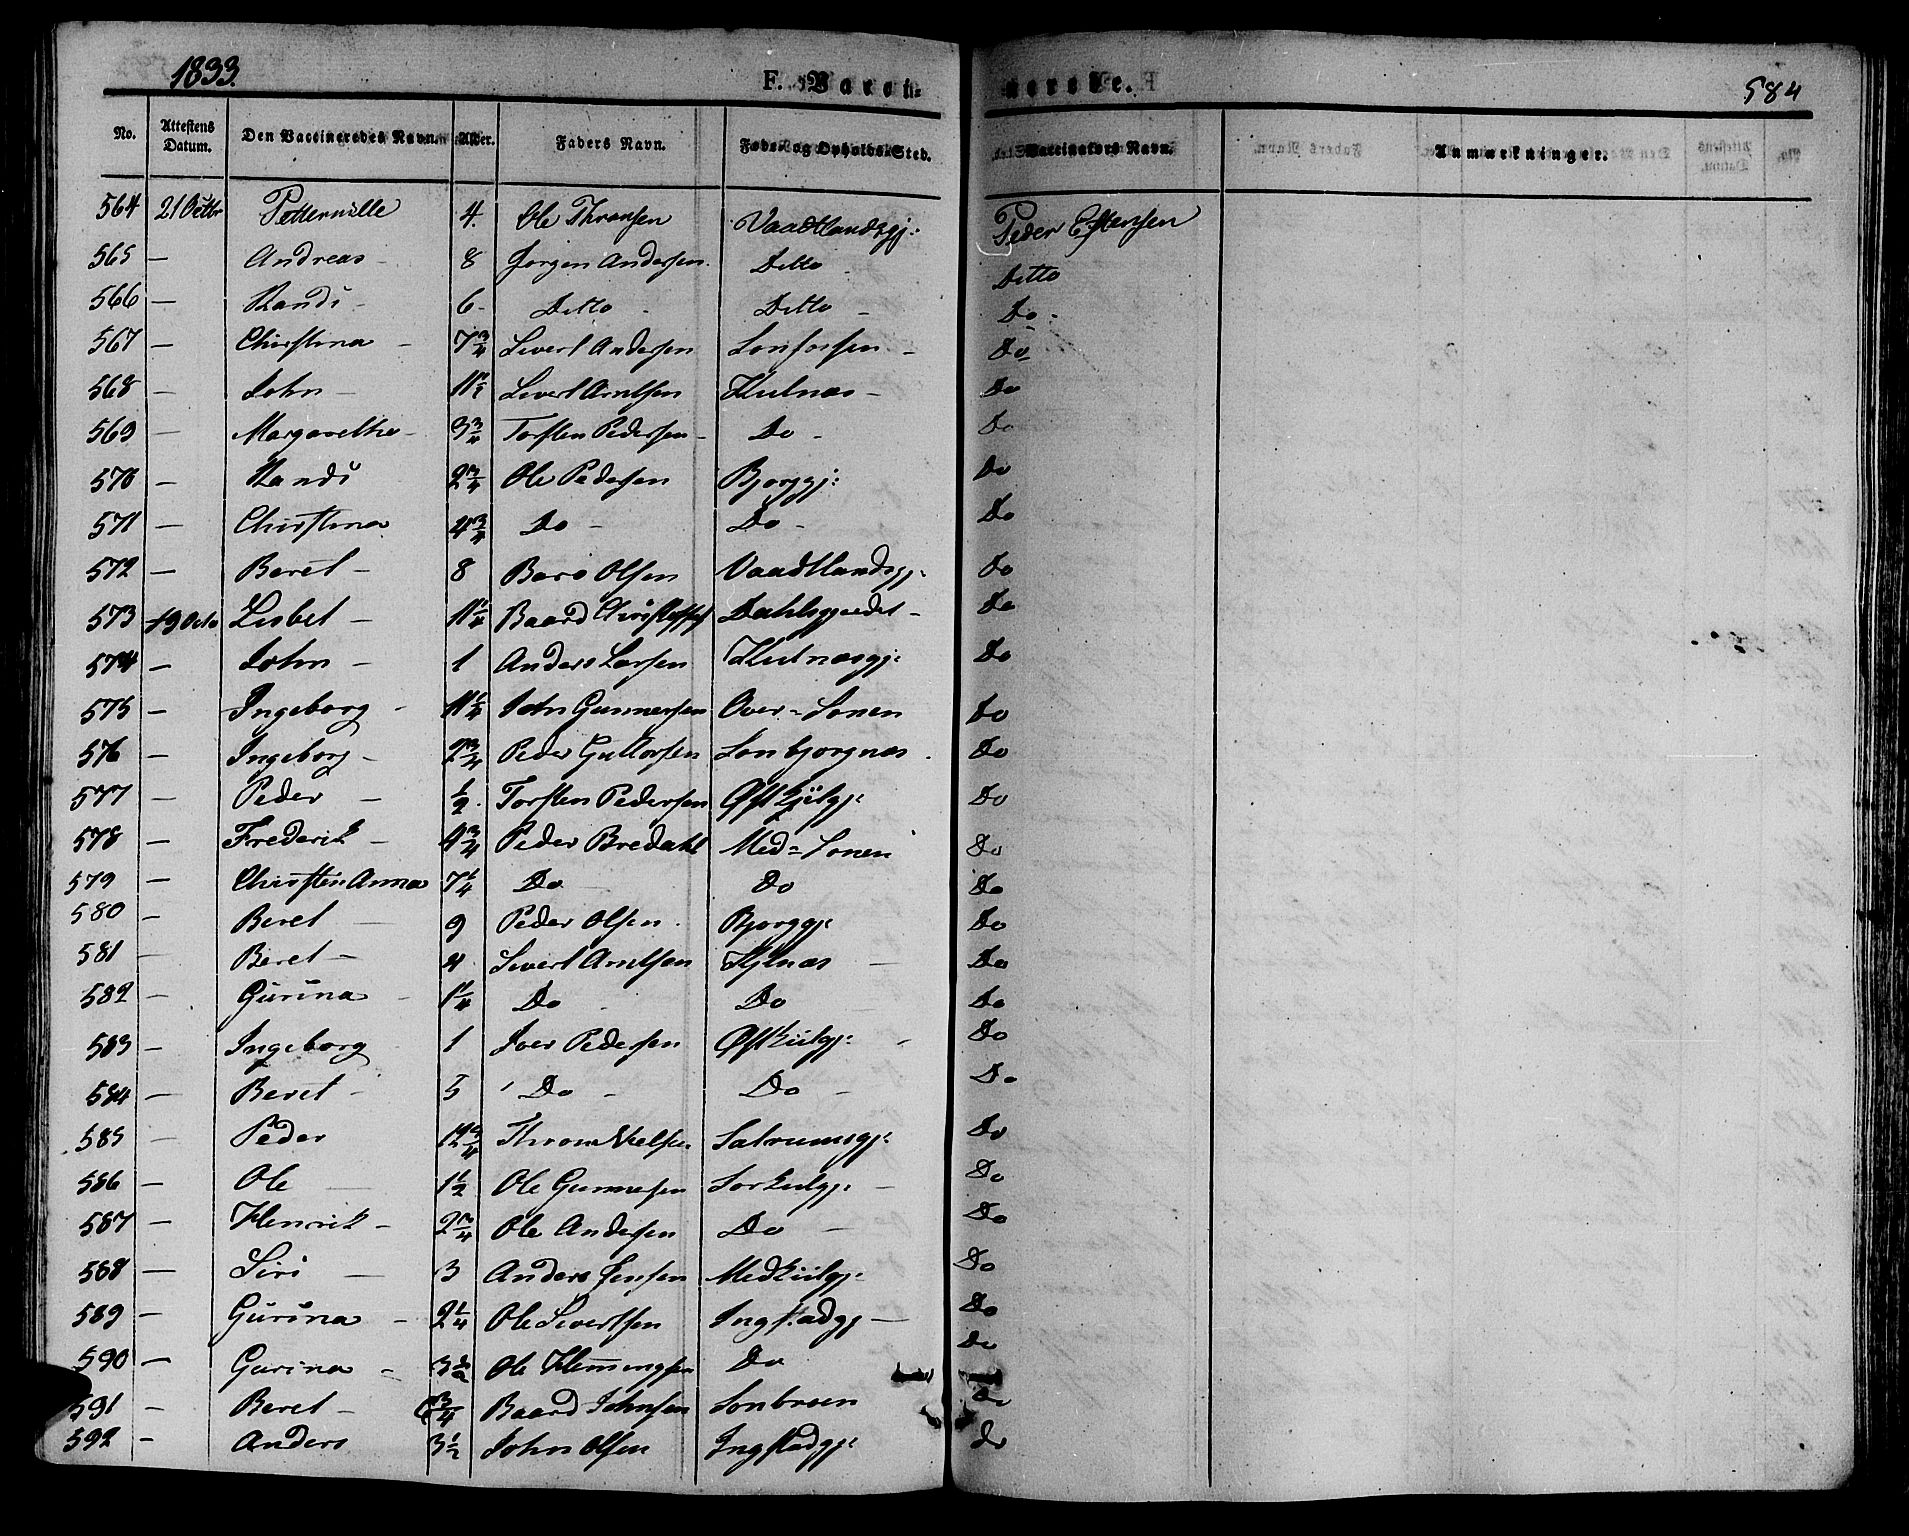 1833. F. Vacci= nerede. 584
No. Attestens Datum. Den Vaccineredes Navn. Alder. Faders Navn. Føde- og Opholds-Sted. Vaccinators Navn. Anmærkninger.
564 21 Octbr Petternille 4. Ole Thronsen Vaadtlandsgj: Peder Estensen
565 — Andreas 8 Jørgen Andersen Ditto Ditto
566 — Randi 6 Ditto Ditto Do
567 — Christina 7 3/4 Sivert Andersen Sonfossen Do
568 — John Sivert Arntsen Kulnæs Do
569 — Margarethe 3 3/4 Torsten Pedersen Do Do
570 — Randi 2 3/4 Ole Pedersen Bjorggj: Do
571 — Christina 4 3/4 Do Do Do
572 — Beret 8 Baro Olsen Vaadtlandsgj: Do
573 Lisbet 1 1/4 Baard Dahlsgjerdet Do
574 — John 1 Anders Larsen Kulnæsgj: Do
575 — Ingeborg 1 1/4 John Gunnersen Over=Sonen Do
576 — Ingeborg 2 3/4 Peder Guttorsen Sonbjorgnæs Do
577 — Peder 1/2 Torsten Pedersen Østkjilgj: Do
578 — Frederik 4 3/4 Peder Bredahl Med=Sonen Do
579 — Christen Anna 7 1/4 Do Do Do
580 — Beret 9 Peder Olsen Bjorggj: Do
581 — Beret 4 Sivert Arntsen Kjlnæs Do
582 — Gurina 1 1/4 Do Do Do
583 — Ingeborg 1 Iver Pedersen Østkiilgj: Do
584 — Beret 5 Do Do Do
585 — Peder Salrumsgj: Do
586 — Ole 1 1/2 Ole Gunnesen Sorkulgj: Do
587 — Henrik 2 3/4 Ole Andersen Do Do
588 — Siri 3 Anders Jensen Medkiilgj: Do
589 — Gurina 2 1/4 Ole Sivertsen Ingstadgj Do
590 — Gurina Ole Hemmingsen Do Do
591 — Beret Baard Johnsen Sonbruen Do
592 — Anders 3 1/2 John Olsen Ingstadgj: do